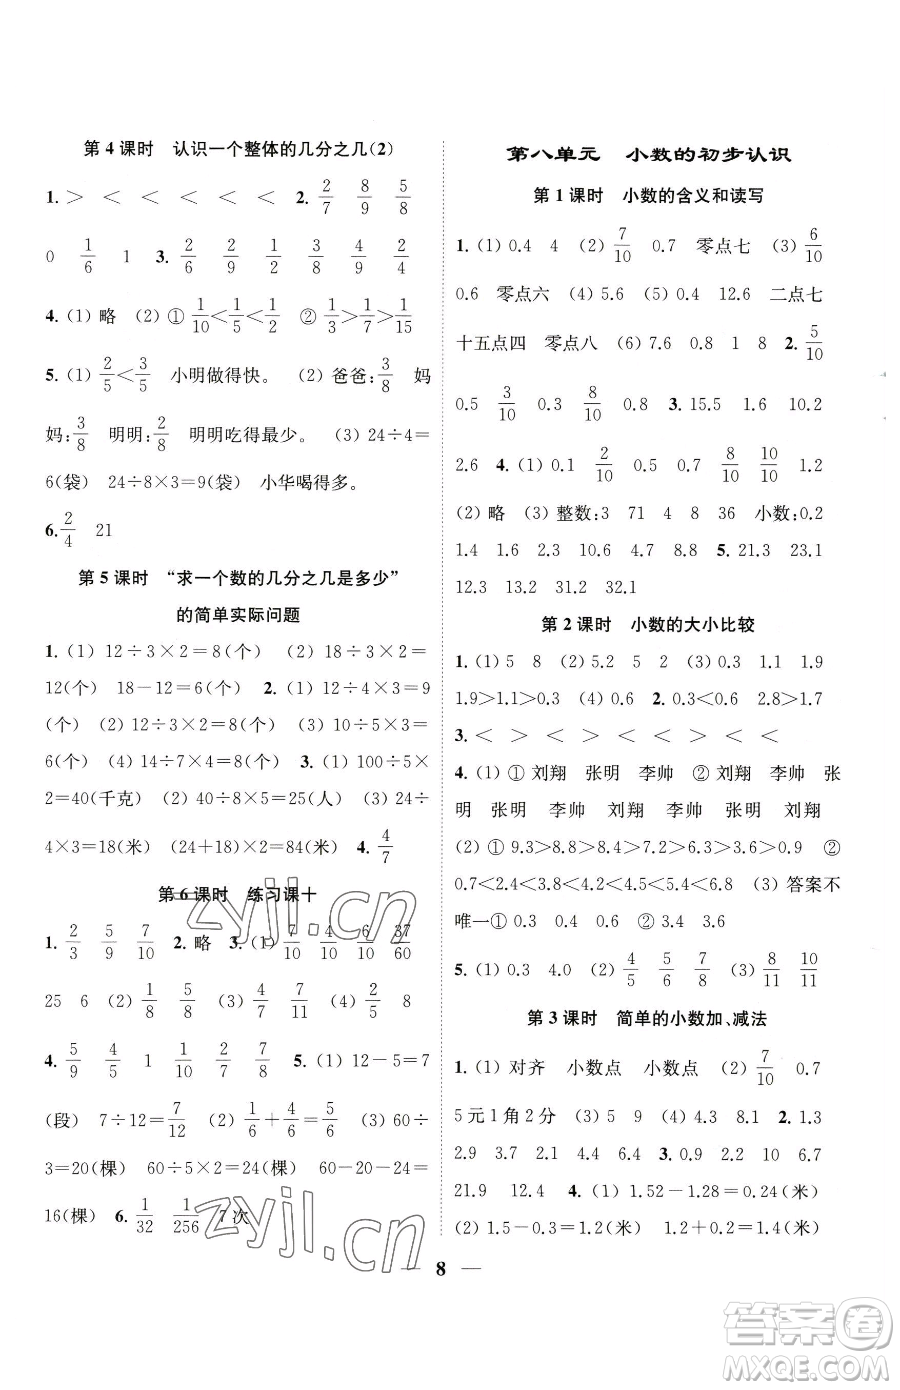 第4课时　认识一个整体的几分之几(2)
1. ＞　＜　＜　＜　＜　2. 2/7　8/9　5/8
0　1/6　1　3. 2/6　2/9　1/2　3/4　2/6　2/4
4. (1) 略　(2) ① 1/10＜1/5＜1/2　② 1/3＞1/7＞1/15
5. (1) 2/5＜3/5　小明做得快。　(2) 爸爸：3/8　妈
妈：3/8　明明：2/8　明明吃得最少。　(3) 24÷4＝
6(袋)　24÷8×3＝9(袋)　小华喝得多。
6. 2/4　21
第5课时　“求一个数的几分之几是多少”
的简单实际问题
1. (1) 12÷3×2＝8(个)　(2) 18÷3×2＝
12(个)　18－12＝6(个)　2. (1) 12÷4×3＝9
(个)　(2) 12÷3×2＝8(个)　(3) 10÷5×3＝
6(个)　(4) 14÷7×4＝8(个)　3. (1) 100÷5
×2＝40(千克)　(2) 40÷8×5＝25(人)　(3) 24÷
4×3＝18(米)　(24＋18)÷7×4＝24(米)　4. 4/7
第6课时　练习课十
1. 2/3　5/9　7/10　2. 略　3. (1) 7/10　4/10　6/10　37/60
25　6　(2) 1/8　5/8　(3) 4/7　7/11　(4) 2/8　8
4. 5/9　4/5　1　1/10　2/7　7/8　5. (1) 12－5＝7
(段)　7÷12＝7/12　(2) 1/6＋4/6＝5/6　(3) 60÷
3＝20(棵)　60÷5×2＝24(棵)　60－20－24＝
16(棵)　6. 1/32　1/256　7次
第八单元　小数的初步认识
第1课时　小数的含义和读写
1. (1) 0.4　4　(2) 7/10　0.7　零点七　(3) 6/10
0.6　零点六　(4) 5.6　(5) 0.4　12.6　二点七
十五点四　零点八　(6) 7.6　0.8　1　8　2. 5/10
0.5　3/10　0.3　8/10　0.8　3. 15.5　1.6　10.2
2.6　4. (1) 0.1　2/10　0.5　0.7　8/10　10/10　1.2
(2) 略　(3) 整数：3　71　4　8　36　小数：0.2
1.4　1.6　12.7　100.8　0.9　5. 21.3　22.6
24.1　25.5　27.2　29.9　31.2　32.1
第2课时　小数的大小比较
1. (1) 5　8　(2) 5.2　5　2　(3) 0.3　1.1　1.9
1.9＞1.1＞0.3　(4) 0.6　2. 0.3＜0.6　2.8＞1.7
3. ＜　＞　＜　＜　＞　＜　＜　＜
4. (1) ① 刘翔　张明　李帅　② 刘翔　李帅　张
明　张明　李帅　刘翔　李帅　张明　刘翔
(2) ① 9.3＞8.8＞8.4＞7.2＞1.6＞0.9　②
0.7＜2.7＜3.5＜4.4＜5.8＜6.7　(3) 答案不
唯一① 0.3　0.4　0.5　② 3.2　3.4　3.6
5. (1) 0.3　4.0　(2) 4/5　5/6　7/8　(3) 8/11　10/11
第3课时　简单的小数加、减法
1. (1) 对齐　小数点　小数点　(2) 7/10　0.7
5元1角2分　(3) 5　(4) 4.3　8.1　2. 1.3
2.9　3.7　0.7　7.2　3. 7.6　15.8　5.5
21.9　12.4　4. (1) 1.52－1.28＝0.24(米)
(2) 1.5－0.3＝1.2(米)　1.2＋0.2＝1.4(米)
8
zyjl.cn
zyjl.cn
答案圈
MXQE.COM